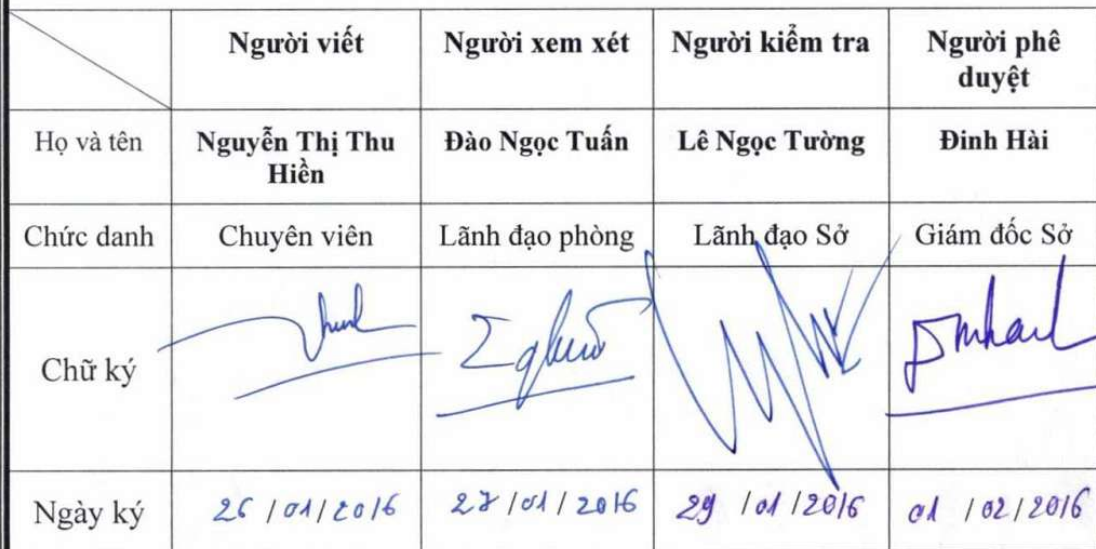 Người viết Người xem xét Người kiểm tra Người phê
duyệt
Họ và tên Nguyễn Thị Thu Đào Ngọc Tuấn Lê Ngọc Tường Đinh Hài
Hiền
Chức danh Chuyên viên Lãnh đạo phòng Lãnh đạo Sở Giám đốc Sở
Chữ ký
Ngày ký 26/01/2016 27/01/2016 29/01/2016 01/02/2016